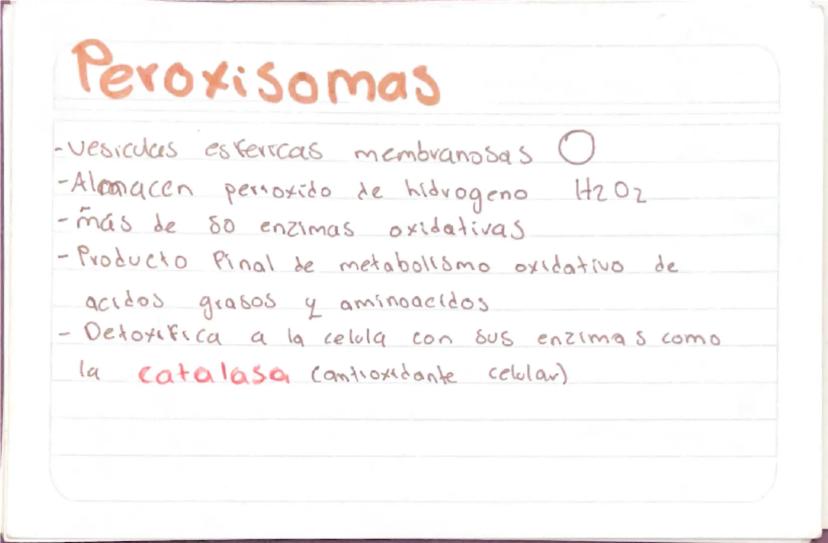 Peroxisomas
-vesiculas esfericas membranosas
-Almacen perroxido de hidrogeno H2O2
-más de 50 enzimas oxidativas
-Producto final de metabolismo oxidativo de
acidos grasos y aminoacidos
- Detoxifica a la celula con sus enzimas como
la catalasa (antioxidante celular)